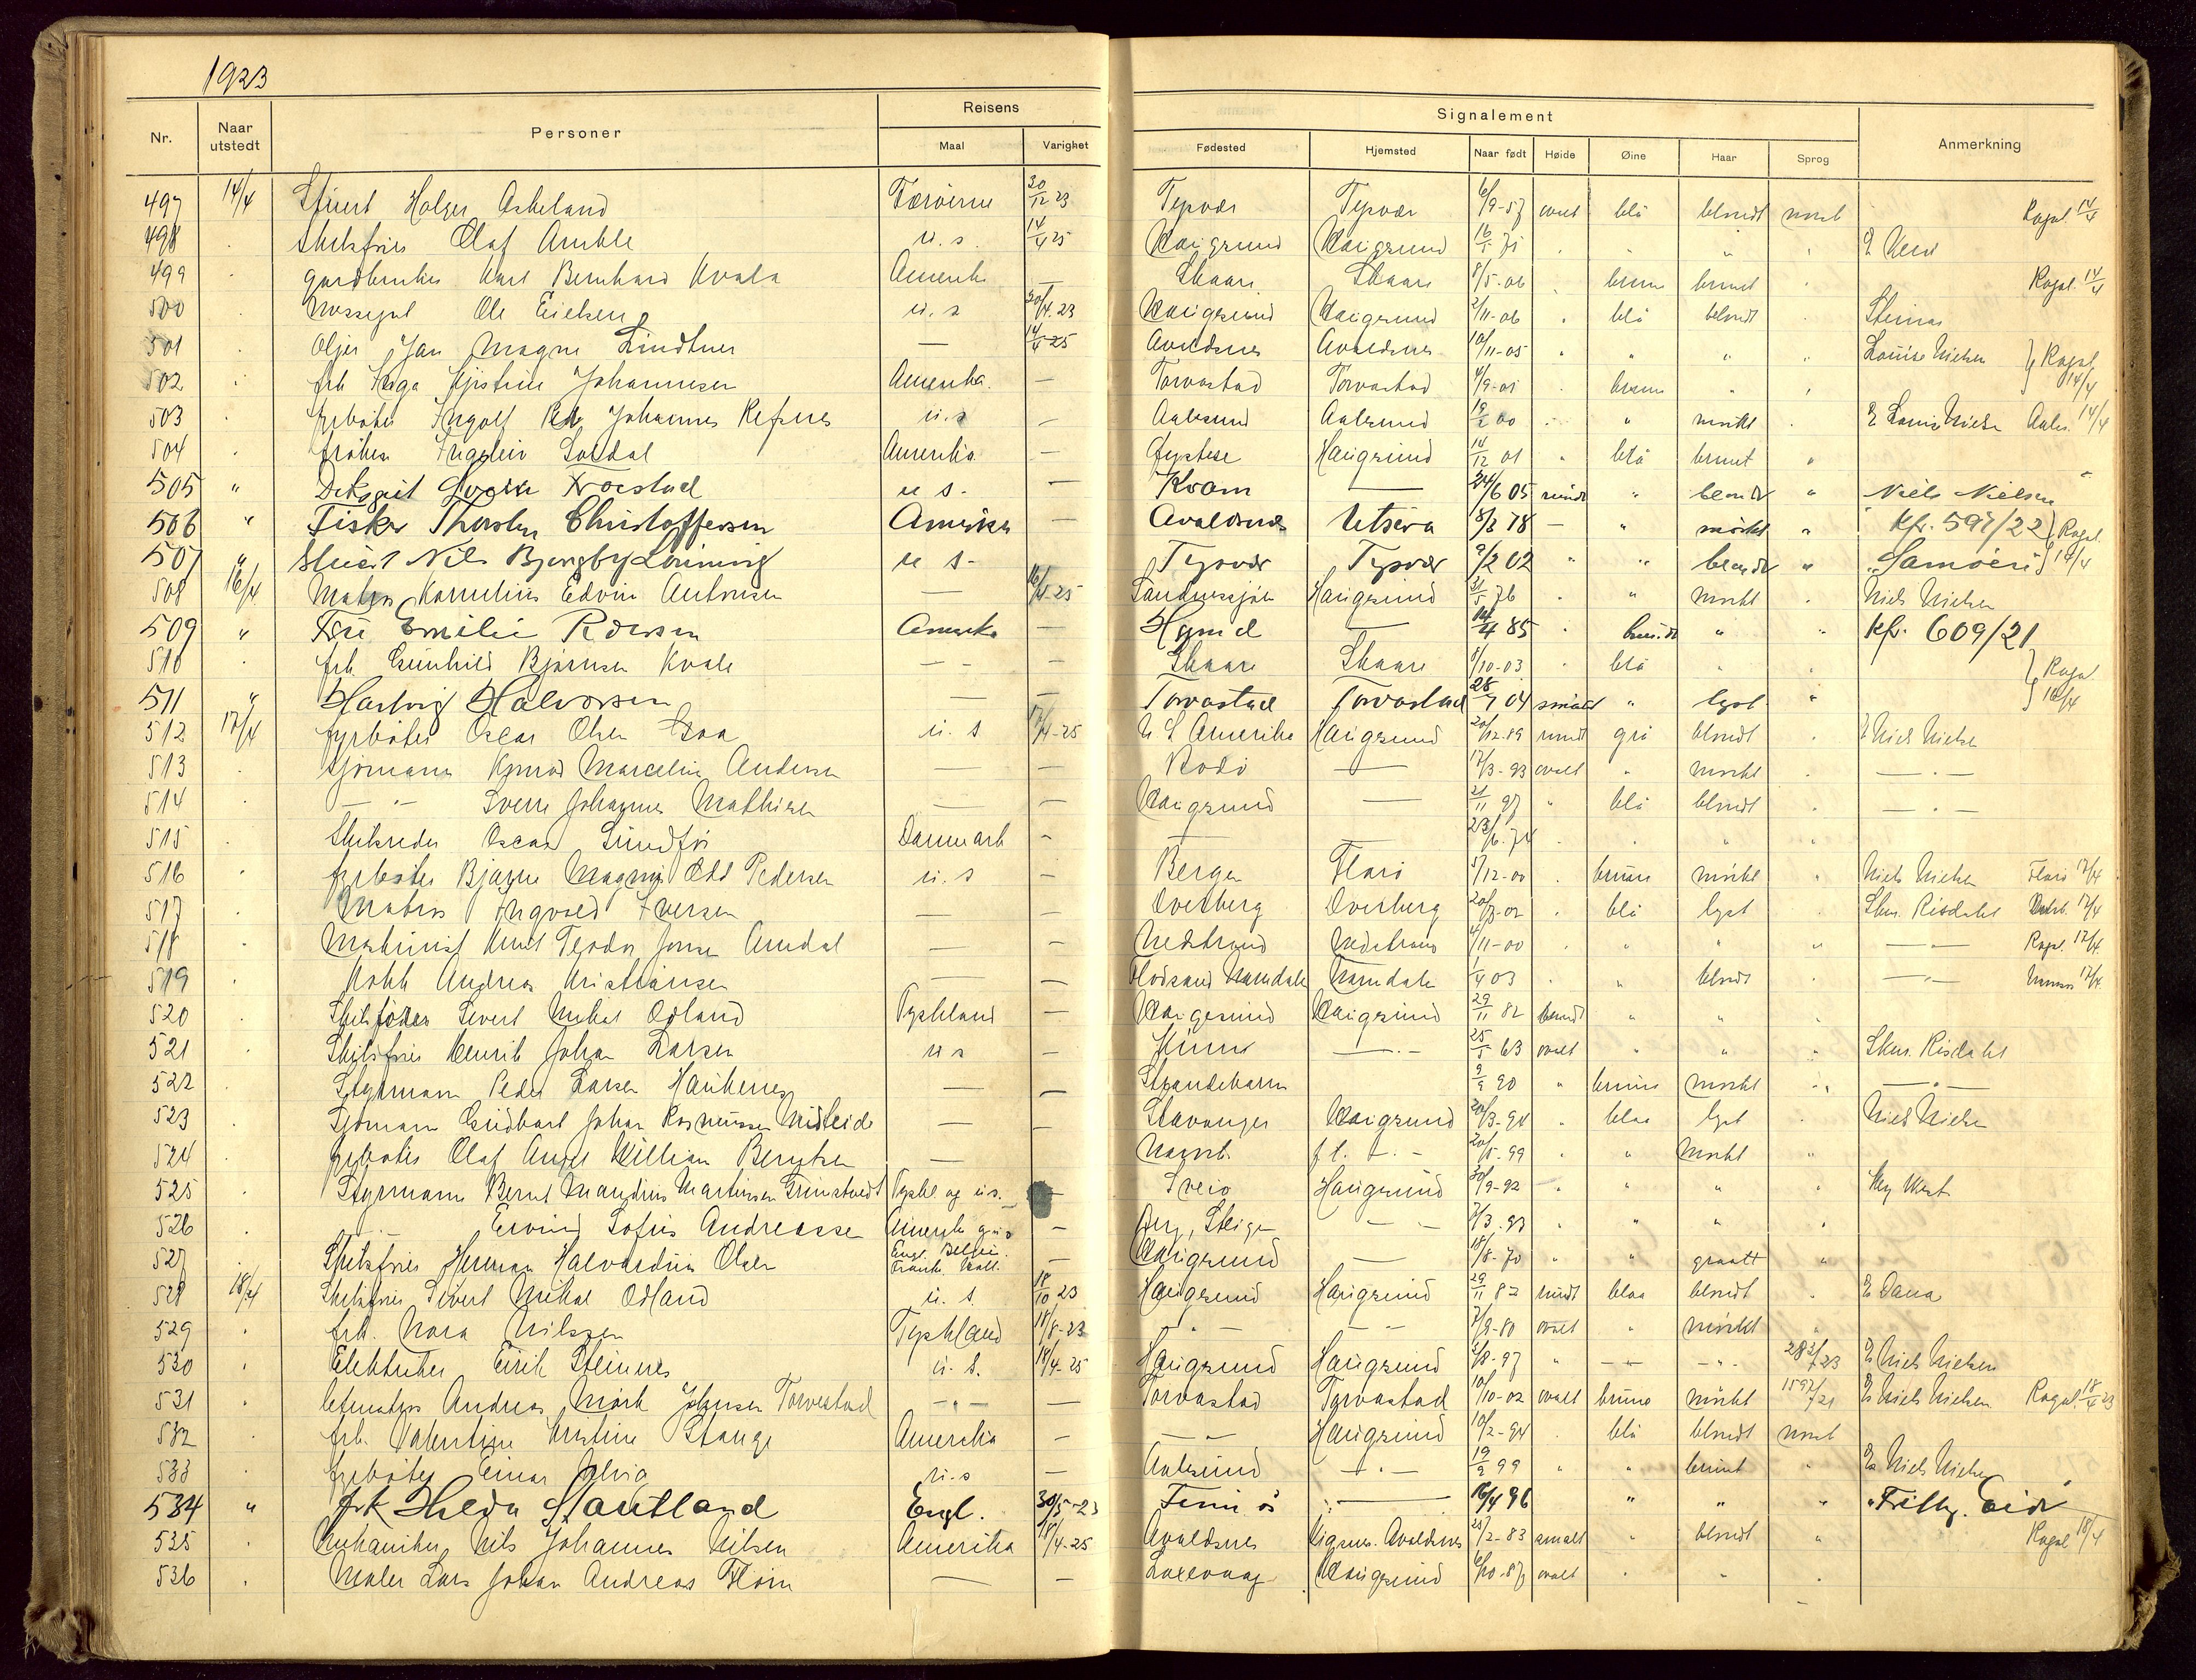 1923
Nr. Naar utstedt Personer Reisens Maal Varighet Fødested Hjemsted Signalement Naar født Høide Øine Haar Sprog Anmerkning
497 14/4 Stuert Holger Askeland Færöerne 30/12 23 Tysvær Tysvær 6/9-57 ovalt blå blondt norsk Rogal. 14/4
498 . Skibsfører Olaf Amble u.s. 14/4 25 Haugesund Haugesund 16/1 71 . . " .
499 . gardbruker Karl Bernhard Kvala Amerika — Skaare Skaare 8/5-06 . brune brunt . Rogal. 14/4
500 . Messegut Ole Eielsen u.s 30/4.23 Haugesund Haugesund 2/11-06 . blå blondt .
501 . Oljer Jan Magne Lindtner — 14/4-25 Avaldsnes Avaldsnes 10/11-05 . " " " Louise Nielsen } Rogal. 14/4
502 . frk Inga Kjistine Johannesen Amerika. — Torvastad Torvastad 4/9-01 . brune " "
503 . fyrbøter Ingolf Johannes Refsnes u.s — Aalesund Aalesund 19/2 00 . " mörkt . E Louise Nielsen Aales. 14/4
504 . fröken Ingeleiv Amerika — Haugesund 14/12 01 " blå brunt "
505 " Dæksgut u s. — Kvam — 24/6 05 rundt " blondt " Niels Nielsen
506 " Fisker Thorsten Christoffersen Amerika — Avaldsnes Utsira 8/2 78 — " mörkt " Kfr. 597/22 } Rogal. 14/4
507 " Stuert Nils Bjergby Lönning u s. Tysvær Tysvær 9/2 02 " " blondt "
508 16/4 Matros Kornelius Edvin Antonsen — 16/4-25 Sandnessjöen Haugesund 31/5 76 . " mörkt . Niels Nielsen
509 " Fru Emilie Amerika — — 14/4 85 . " " Kfr. 609/21
510 . frk. Gunhild Bjarnsen Kvale — — Skaare Skaare 8/10-03 " blå . . } Rogal. 16/4
511 " Hartvig Halvorsen — — Torvastad Torvastad 28/7 04 smalt " lyst "
512 17/4 fyrbøter Oscar Olsen u. s 17/4-25 U S Amerika Haugesund 20/12.89 rundt grå blondt . E Niels Nielsen
513 . Sjömann Konrad Marcelius Andersen — — Bodö — 17/3-93 ovalt " mörkt . — " —
514 . — " — Sverre Johannes Mathisen — — Haugesund — 21/11 97 " blå blondt . — " —
515 . Skibsreder Oscar Sundför Danmark — 23/6.74 . . " "
516 . fyrbøter Bjarne Magny Odd Pedersen u.s — Bergen Florö 5/12-00 . brune mörkt . Niels Nielsen Florö 17/4
517 . Matros Ingvald Iversen — — Overberg Overberg . blå lyst . Skm. Risdahl 17/4
518 . Maskinist Knut Teodor Jonsen Amdal — — Nedstrand Nedstrand 4/11-00 . " " " — " — Rogal. 17/4.
519 . Kokk Andreas Kristiansen — — Namdalen Namdalen 1/4 03 . " blondt — " — Namsos 17/4.
520 . Skibsfører Sivert Mikal Odland Tyskland — Haugesund Haugesund 29/11 82 " " .
521 . Skibsfører Henrik Johan Larsen u s — Kinn — . — 25/5 63 ovalt " " " Skm. Risdahl
522 . Styrmann Peder Larsen — — Strandebarm 9/9 90 " brune mörkt " — " —
523 . Sjömann Gudbart Johan Rasmussen — — Stavanger Haugesund 20/3-94 . blaa lyst . Niels Nielsen
524 . fyrbøter Olaf August William Berntsen — — 20/5-99 . " mörkt "
525 . Styrmann Bernt Mandius Martinsen Grimstvedt Tyskl og u.s. — Sveio Haugesund 30/9-92 " " " Key West
526 . — Eivind Sofus Andreassen Amerika — Steigen — . — 7/3.93 . " " "
527 . Skibsfører Herman Halvardius Olsen Engl. Belgi. Frank. Holl. — Haugesund — 18/8-70 " " graatt "
528 18/4 Skibsfører Sivert Mikal Odland u. s. 18/10 23 Haugesund Haugesund 29/11 82 rundt blaa blondt . E Dana
529 . frk. Nora Nilssen Tyskland 18/8-23 — " — — " — 7/9-80 ovalt " mörkt "
530 . Elektriker Eirik Steinnes u. s. 18/4-25 Haugesund Haugesund 2/8-97 " — " — — " — 282/23 E Niels Nielsen
531 . Letmatros Andreas Mörk Johnsen Torvestad — " — — Torvastad Torvastad 10/10-02 ovalt brune mörkt 1597/21 E Niels Nielsen Rogal. 18/4 23
532 . frk. Valentine Kristine Stange Amerika — — " — Haugesund 10/2-94 . blå blondt norsk
533 . fyrbøter Einar u.s — Aalesund — " — 19/9 99 " " brunt " E Niels Nielsen
534 " frk Hilda Stautland Engl. 30/5-23 — 16/4 96 " " "
535 . Mekaniker Nils Johannes Nilsen Amerika 18/4-25 Avaldsnes Avaldsnes 25/2-83 smalt " blondt " Rogal 18/4
536 . Maler Lars Johan Andreas — — Laxevaag Haugesund 6/10-87 ovalt . "